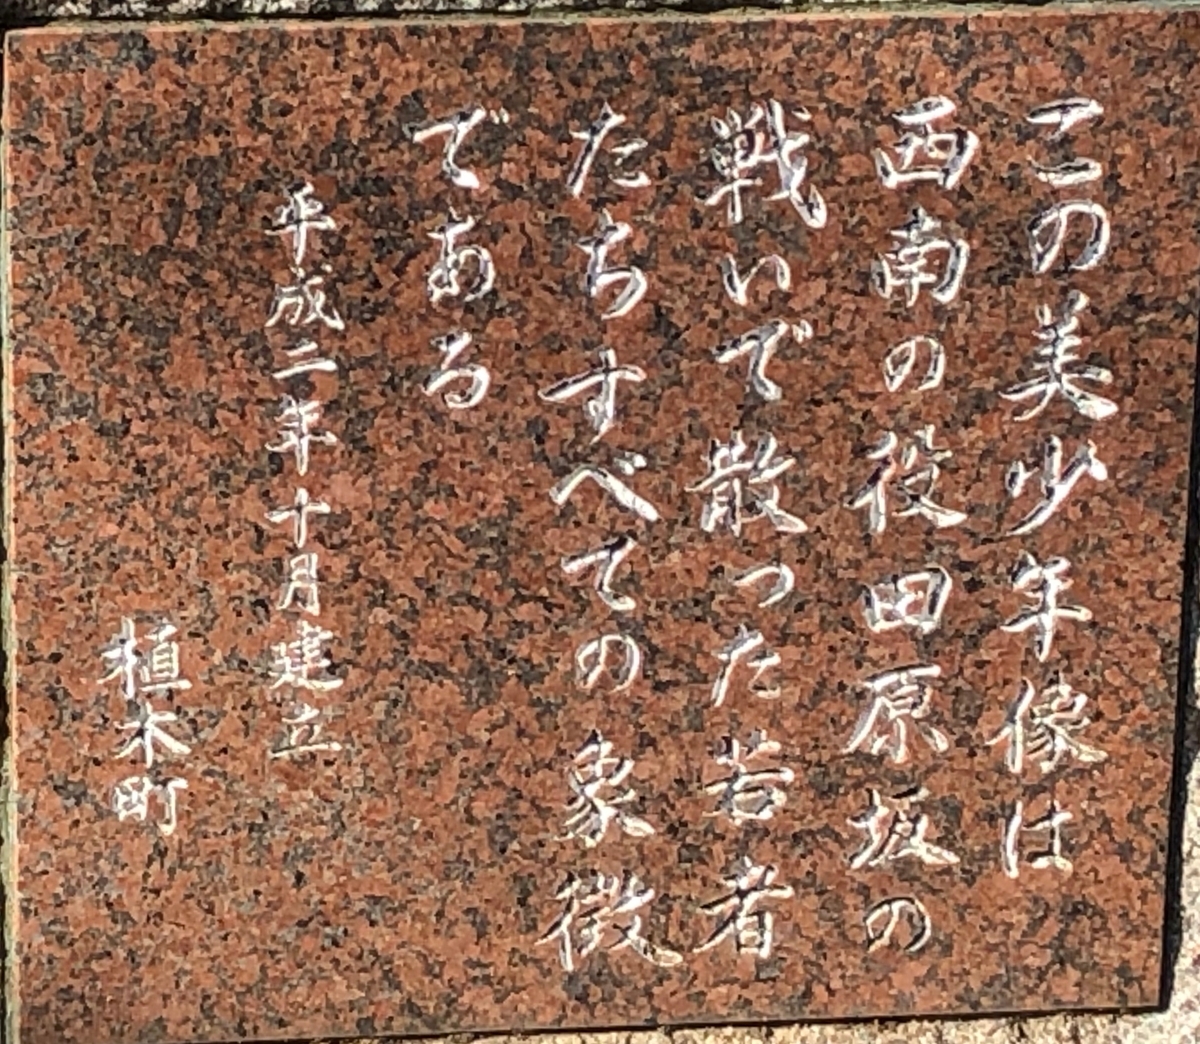 この美少年像は
西南の役田原坂の
戦いで散った若者
たちすべての象徴
である
平成二年十月建立
植木町